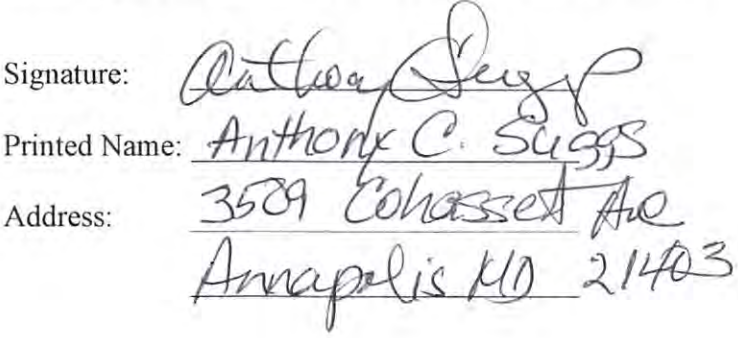 Signature: Anthony Suggs
Printed Name: Anthony C. Suggs
Address: 3509 Cohasset Ave
Annapolis MD 21403